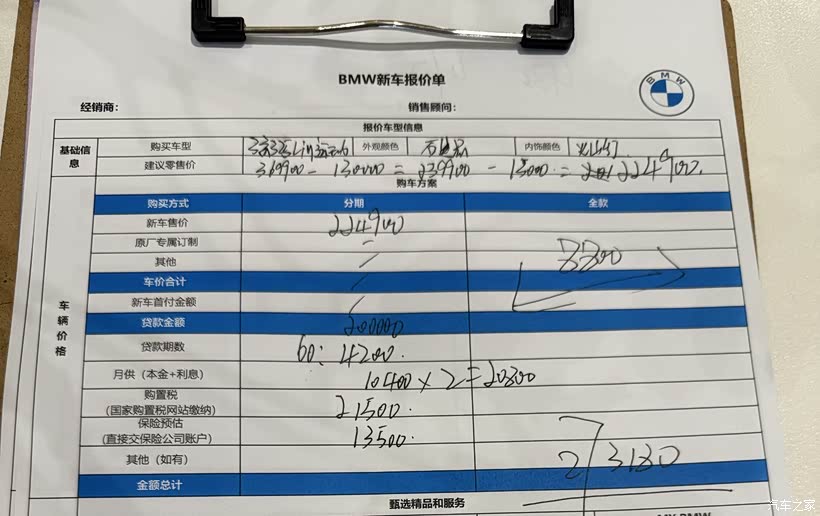 BMW新车报价单
BMW
经销商： 销售顾问：
报价车型信息
基础信息 购买车型 外观颜色 内饰颜色
建议零售价 369900 - 130000 = 239900 - 15000 = 224900.
购车方案
购买方式 分期 全款
车辆价格
新车售价 224900
原厂专属订制
其他 3300
车价合计
新车首付金额
贷款金额 200000
贷款期数 60: 4200.
月供（本金+利息） 10400 × 2 = 20800
购置税
(国家购置税网站缴纳) 21500.
保险预估
(直接交保险公司账户) 13500.
其他（如有） 2 3180
金额总计
甄选精品和服务
MY BMW
汽车之家